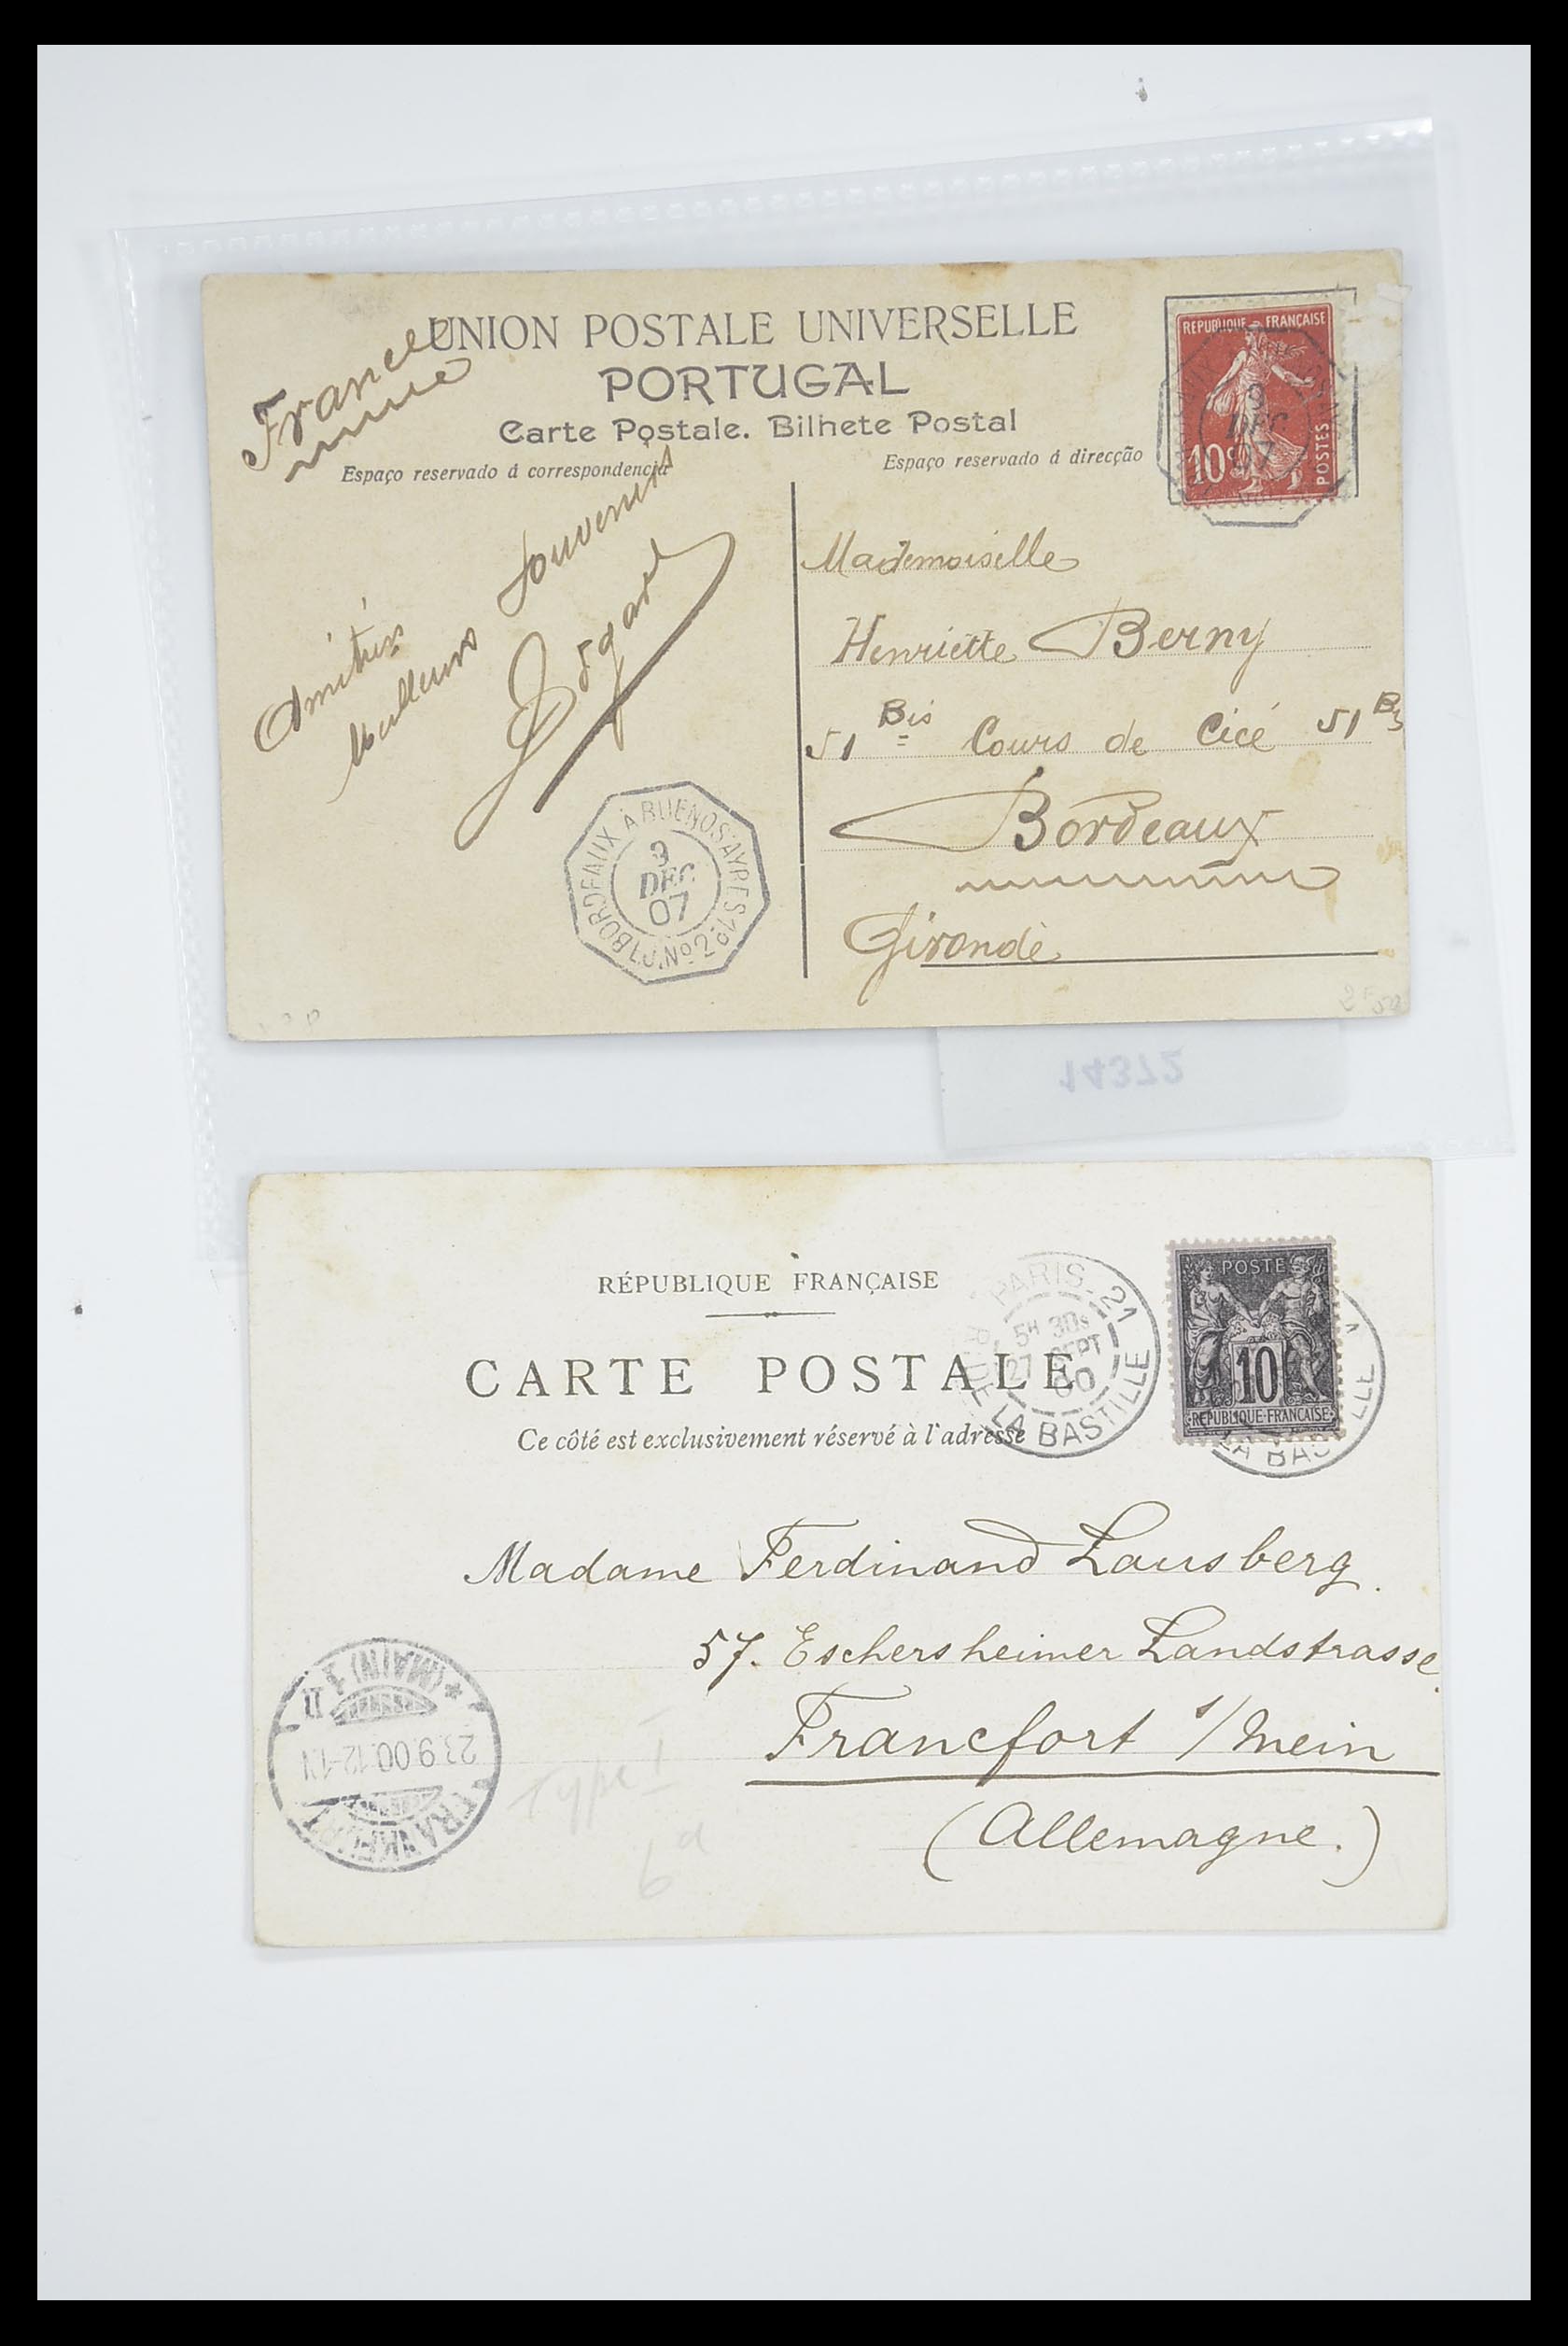 UNION POSTALE UNIVERSELLE
PORTUGAL
Carte Postale. Bilhete Postal
Espaço reservado á correspondencia
Espaço reservado á direcção
France
REPUBLIQUE FRANÇAISE
10c
POSTES
9
DEC
07
Amitiés
Meilleurs Souvenirs
Edgard
Mademoiselle
Henriette Berny
51 Bis Cours de Cicé 51 Bis
Bordeaux
Gironde
BORDEAUX À BUENOS AYRES
L.J. Nº 2
DEC
07
14372
RÉPUBLIQUE FRANÇAISE
CARTE POSTALE
Ce côté est exclusivement réservé à l'adresse
PARIS. 21
5H 30S
27 SEPT
00
R. DE LA BASTILLE
POSTE
10
REPUBLIQUE FRANÇAISE
LA BAS LLE
Madame Ferdinand Lausberg.
57. Eschersheimer Landstrasse.
Francfort s/ Mein
(Allemagne.)
FRANKFURT
23.9.00.12-1N
(MAIN) 1
Type I
6d